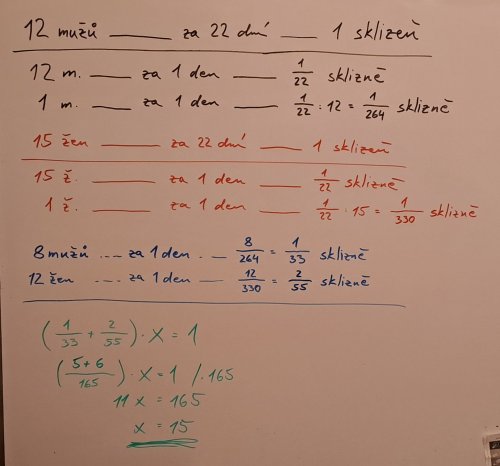 12 mužů ____ za 22 dní ____ 1 sklizeň
12 m. ____ za 1 den ____ 1/22 sklizně
1 m. ____ za 1 den ____ 1/22 : 12 = 1/264 sklizně
15 žen ____ za 22 dní ____ 1 sklizeň
15 ž. ____ za 1 den ____ 1/22 sklizně
1 ž. ____ za 1 den ____ 1/22 · 15 = 1/330 sklizně
8 mužů .... za 1 den ... 8/264 = 1/33 sklizně
12 žen .... za 1 den ____ 12/330 = 2/55 sklizně
(1/33 + 2/55) · x = 1
((5+6)/165) · x = 1 /·165
11 x = 165
x = 15